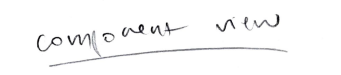 component view